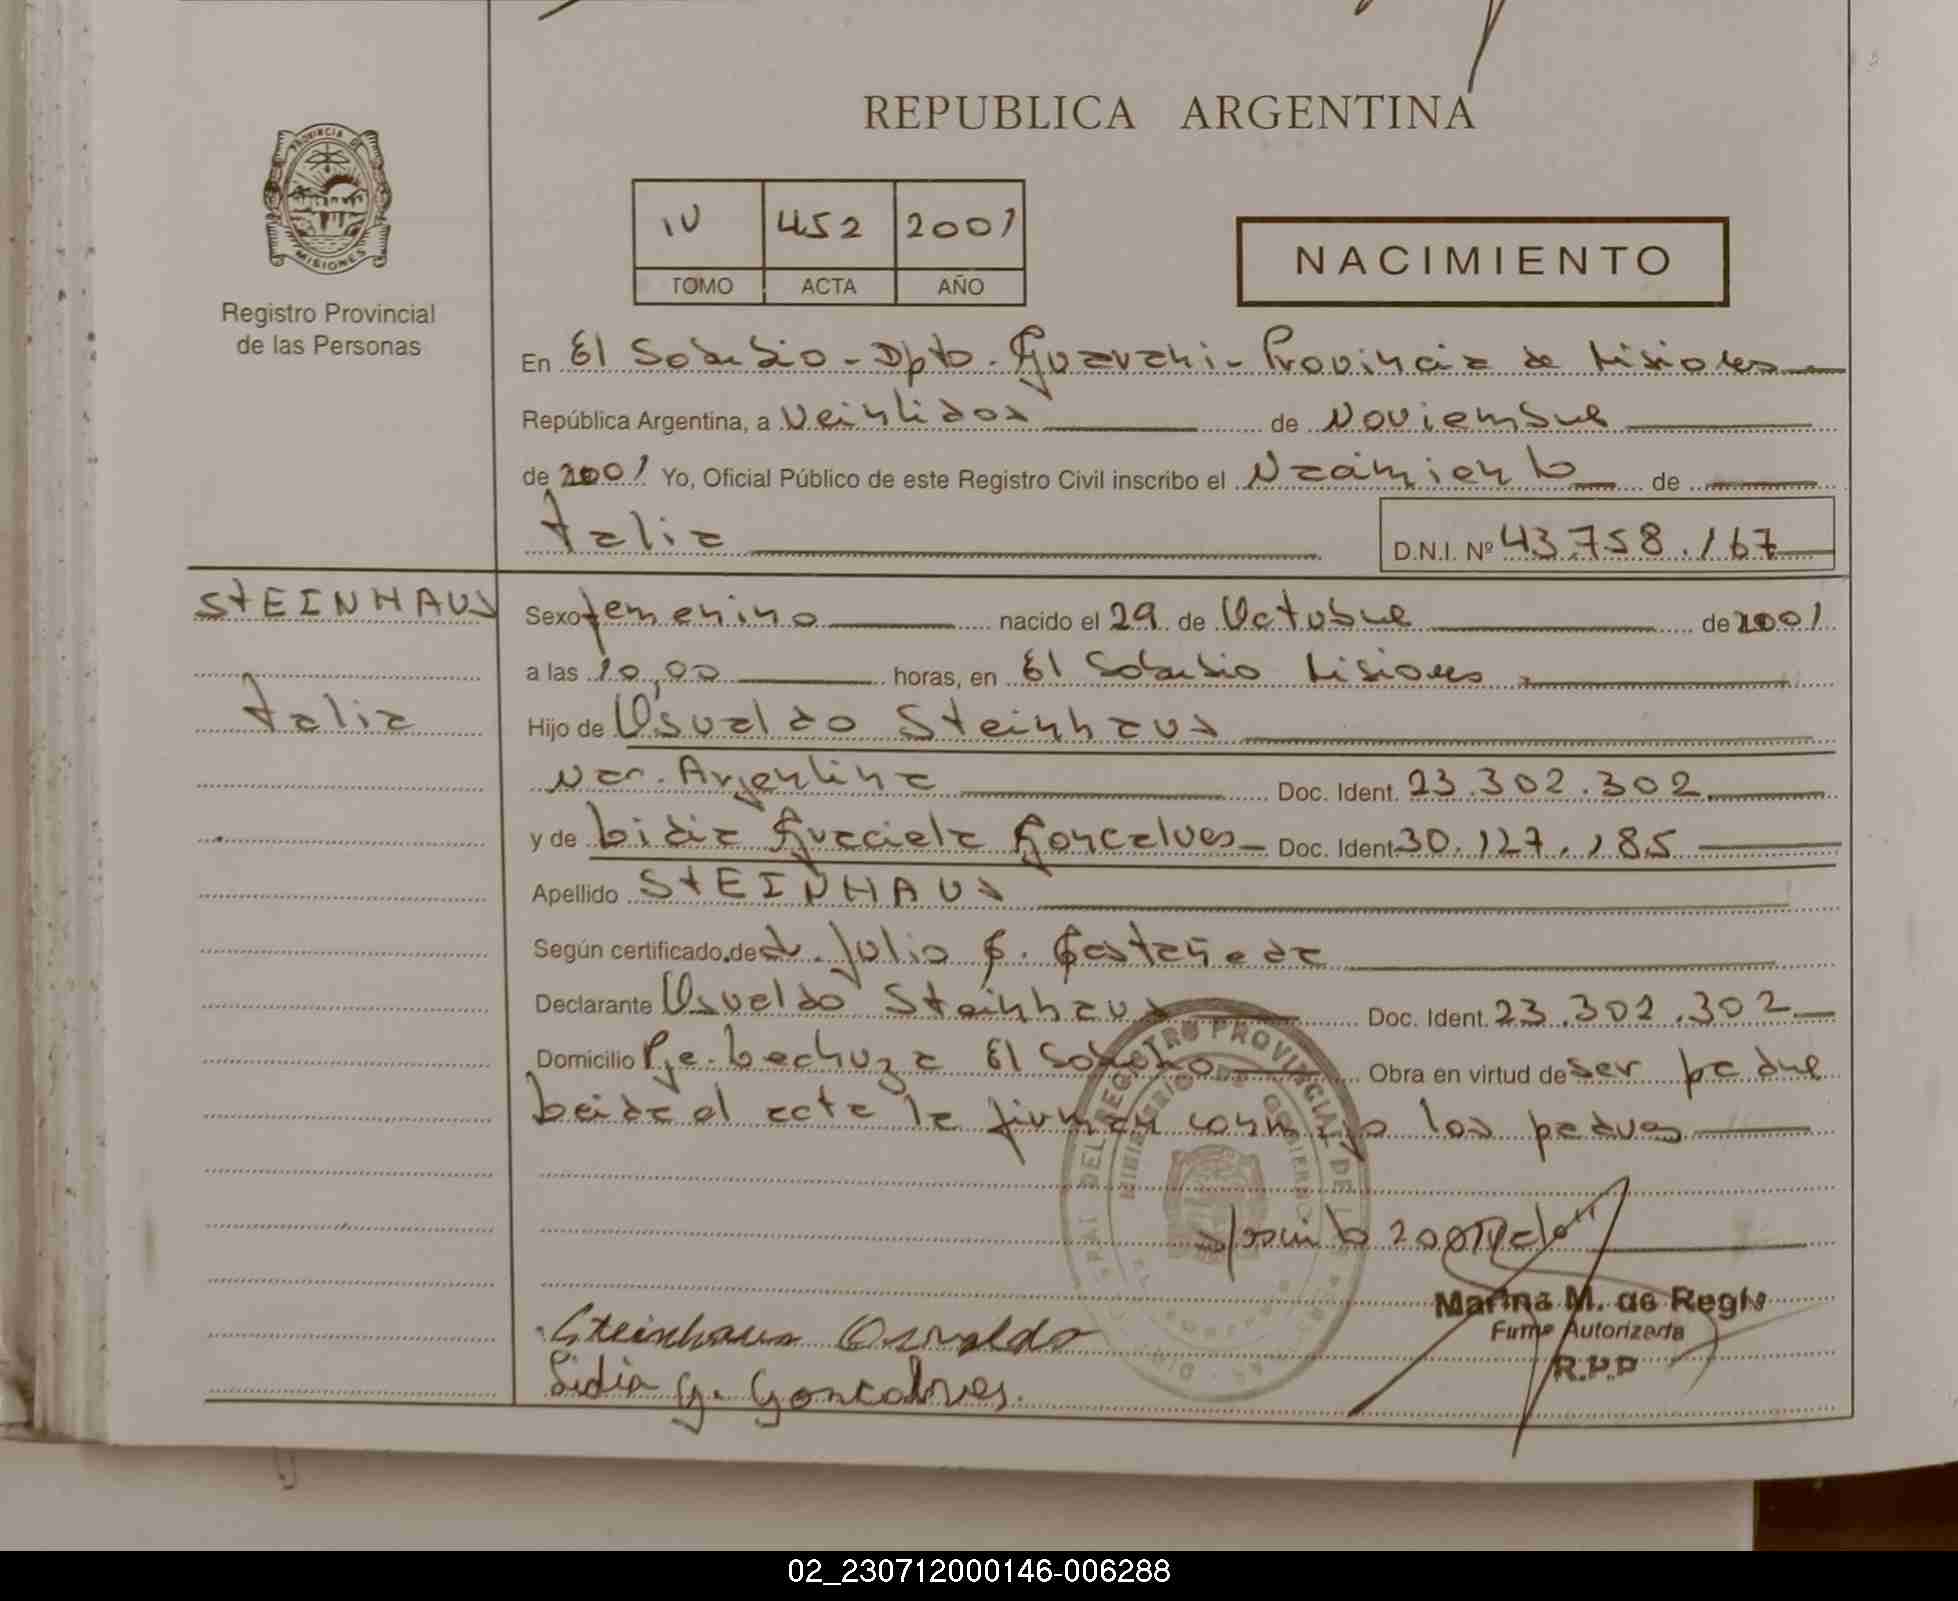 REPUBLICA ARGENTINA
PROVINCIA DE MISIONES
Registro Provincial
de las Personas
IV 452 2001
TOMO ACTA AÑO
NACIMIENTO
En El Soberbio - Dpto. Guarani - Provincia de Misiones
República Argentina, a Veintidos de Noviembre
de 2001 Yo, Oficial Público de este Registro Civil inscribo el Nacimiento de
Talia D.N.I. Nº 43.758.167
STEINHAUS
Talia
Sexo femenino nacido el 29 de Octubre de 2001
a las 10,00 horas, en El Soberbio Misiones
Hijo de Osvaldo Steinhaus
Nac. Argentina Doc. Ident. 23.302.302
y de Lidia Graciela Goncalves Doc. Ident. 30.127.185
Apellido STEINHAUS
Según certificado de dr. Julio Castañeda
Declarante Osvaldo Steinhaus Doc. Ident. 23.302.302
Domicilio Pje. Lechuza El Soberbio Obra en virtud de ser padre
Leida el acta la firman conmigo los padres
2001 Vale"
Steinhaus Osvaldo
Lidia G. Goncalves.
Marina M. de Regis
Firma Autorizada
R.P.P
02_230712000146-006288